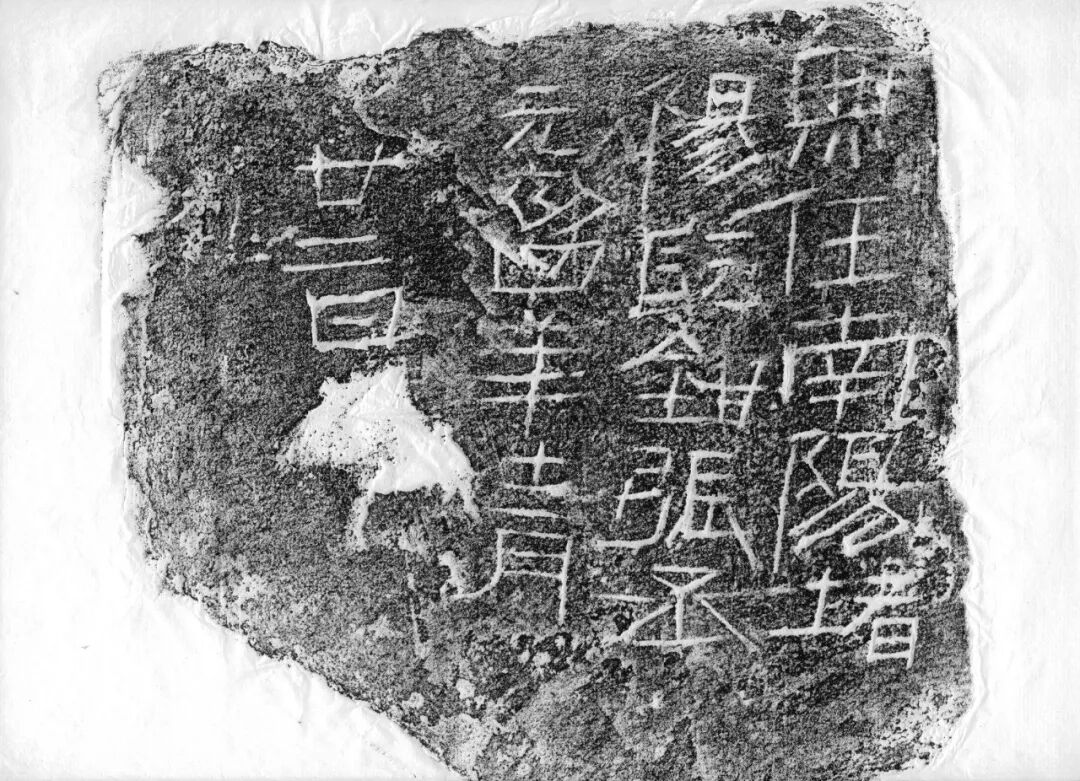 無任南陽堵
陽髡鉗張丞
元年十二月
廿二日